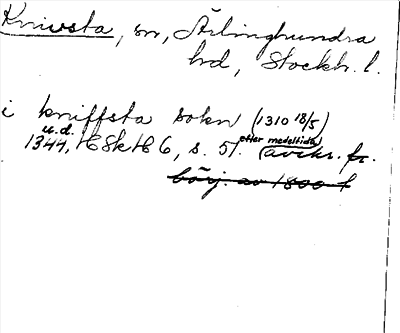 Knivsta, sn, Ärlinghundra
hd, Stockh. l.
i kniffsta sokn (1310 18/5)
u.d. efter medeltida
1344, HSkH 6, s. 51. (avskr. fr.
börj. av 1800 t